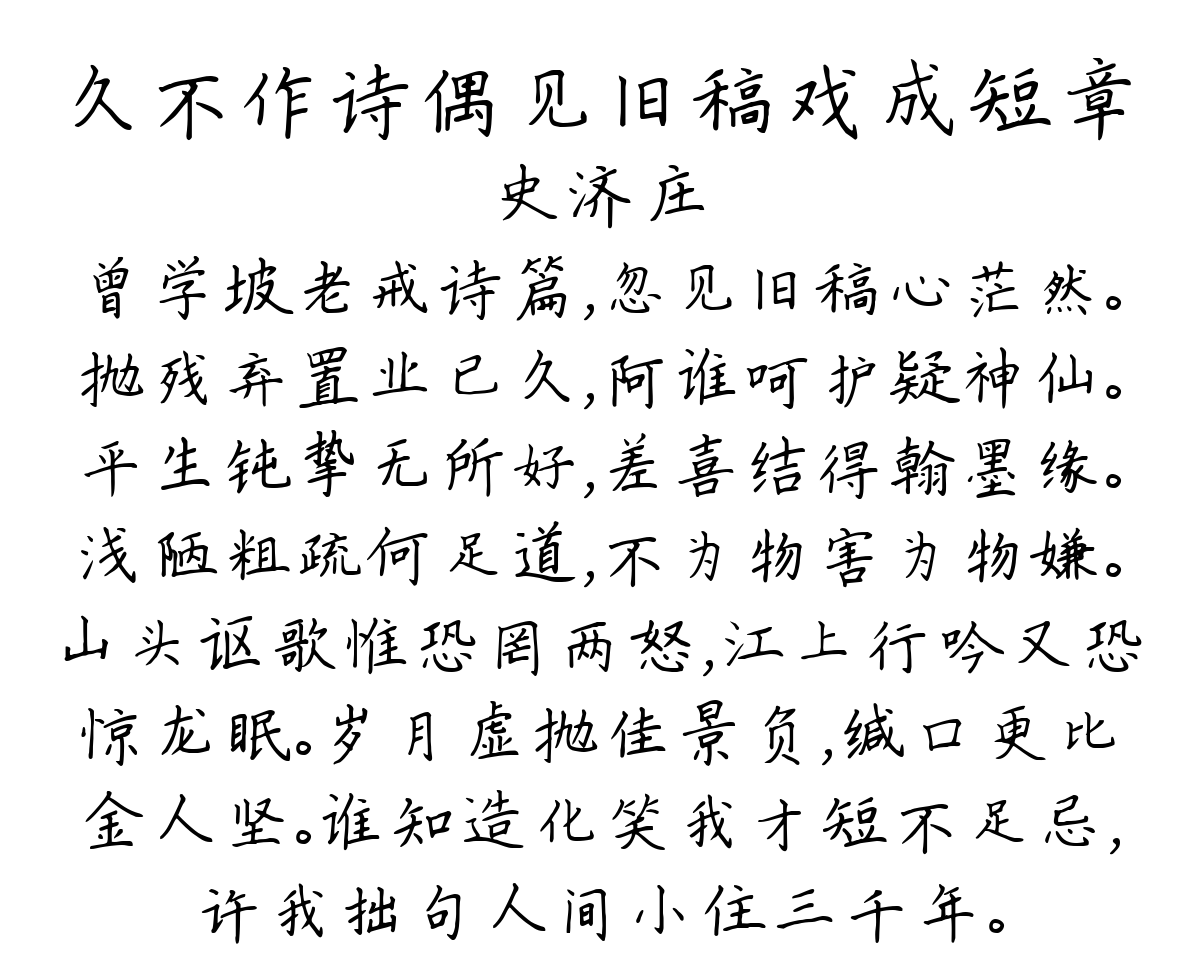 久不作诗偶见旧稿戏成短章
史济庄
曾学坡老戒诗篇,忽见旧稿心茫然。
抛残弃置业已久,阿谁呵护疑神仙。
平生钝挚无所好,差喜结得翰墨缘。
浅陋粗疏何足道,不为物害为物嫌。
山头讴歌惟恐罔两怒,江上行吟又恐
惊龙眠。岁月虚抛佳景负,缄口更比
金人坚。谁知造化笑我才短不足忌,
许我拙句人间小住三千年。